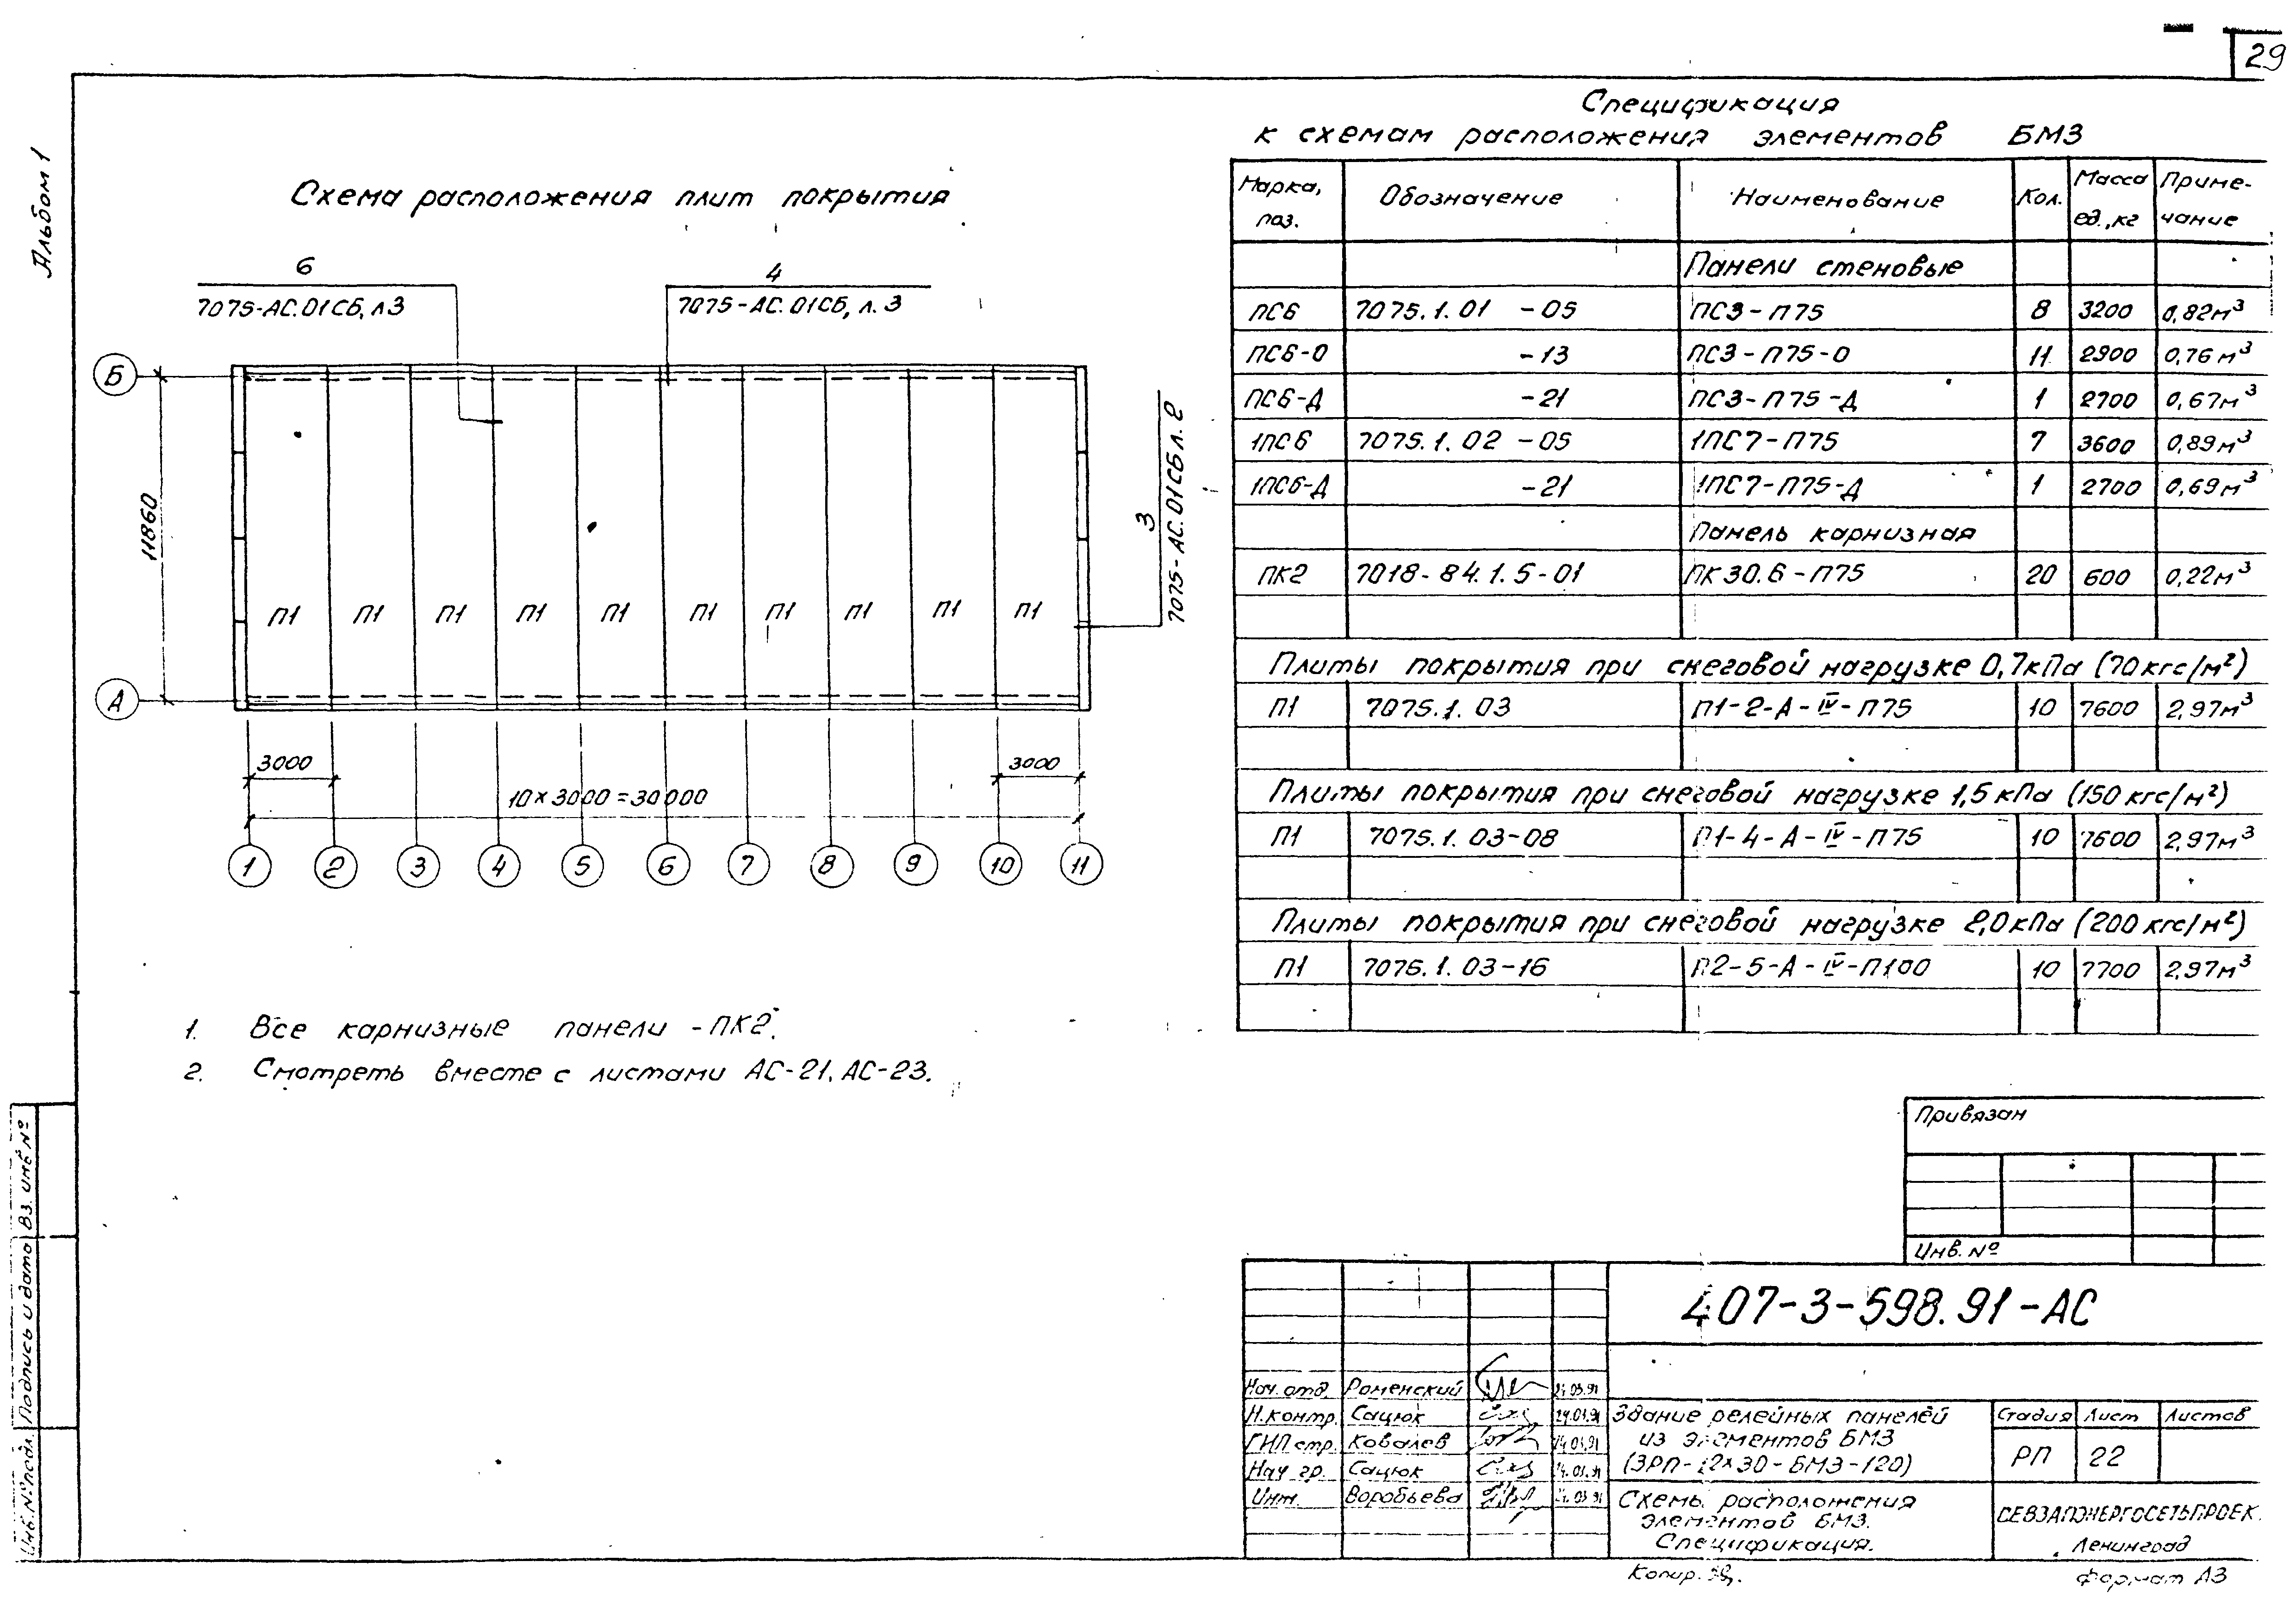 29
Альбом 1
Схема расположения плит покрытия
6
7075-АС.01СБ, л3
4
7075-АС.01СБ, л.3
3
7075-АС.01СБ л.2
Б
А
11860
П1 П1 П1 П1 П1 П1 П1 П1 П1 П1
3000
3000
10×3000=30000
1 2 3 4 5 6 7 8 9 10 11
1. Все карнизные панели - ПК2.
2. Смотреть вместе с листами АС-21, АС-23.
Спецификация
к схемам расположения элементов БМЗ
Марка, поз. Обозначение Наименование Кол. Масса ед., кг Примечание
Панели стеновые
ПС6 7075.1.01 -05 ПС3-П75 8 3200 0,82м³
ПС6-О -13 ПС3-П75-О 11 2900 0,76м³
ПС6-Д -21 ПС3-П75-Д 1 2700 0,67м³
1ПС6 7075.1.02 -05 1ПС7-П75 7 3600 0,89м³
1ПС6-Д -21 1ПС7-П75-Д 1 2700 0,69м³
Панель карнизная
ПК2 7018-84.1.5-01 ПК30.6-П75 20 600 0,22м³
Плиты покрытия при снеговой нагрузке 0,7кПа (70кгс/м²)
П1 7075.1.03 П1-2-А-IV-П75 10 7600 2,97м³
Плиты покрытия при снеговой нагрузке 1,5кПа (150кгс/м²)
П1 7075.1.03-08 П1-4-А-IV-П75 10 7600 2,97м³
Плиты покрытия при снеговой нагрузке 2,0кПа (200кгс/м²)
П1 7075.1.03-16 П2-5-А-IV-П100 10 7700 2,97м³
Привязан
Инв. №
407-3-598.91-АС
Нач. отд. Роменский
Н.контр. Сацюк
ГИП стр. Ковалев
Нач. гр. Сацюк
Инж. Воробьева
Здание релейных панелей
из элементов БМЗ
(ЗРП-12×30-БМЗ-120)
Стадия Лист Листов
РП 22
Схемы расположения
элементов БМЗ.
Спецификация.
СЕВЗАПЭНЕРГОСЕТЬПРОЕК
Ленинград
Копир.
Формат А3
Инв.№ подл. Подпись и дата Вз. инв №